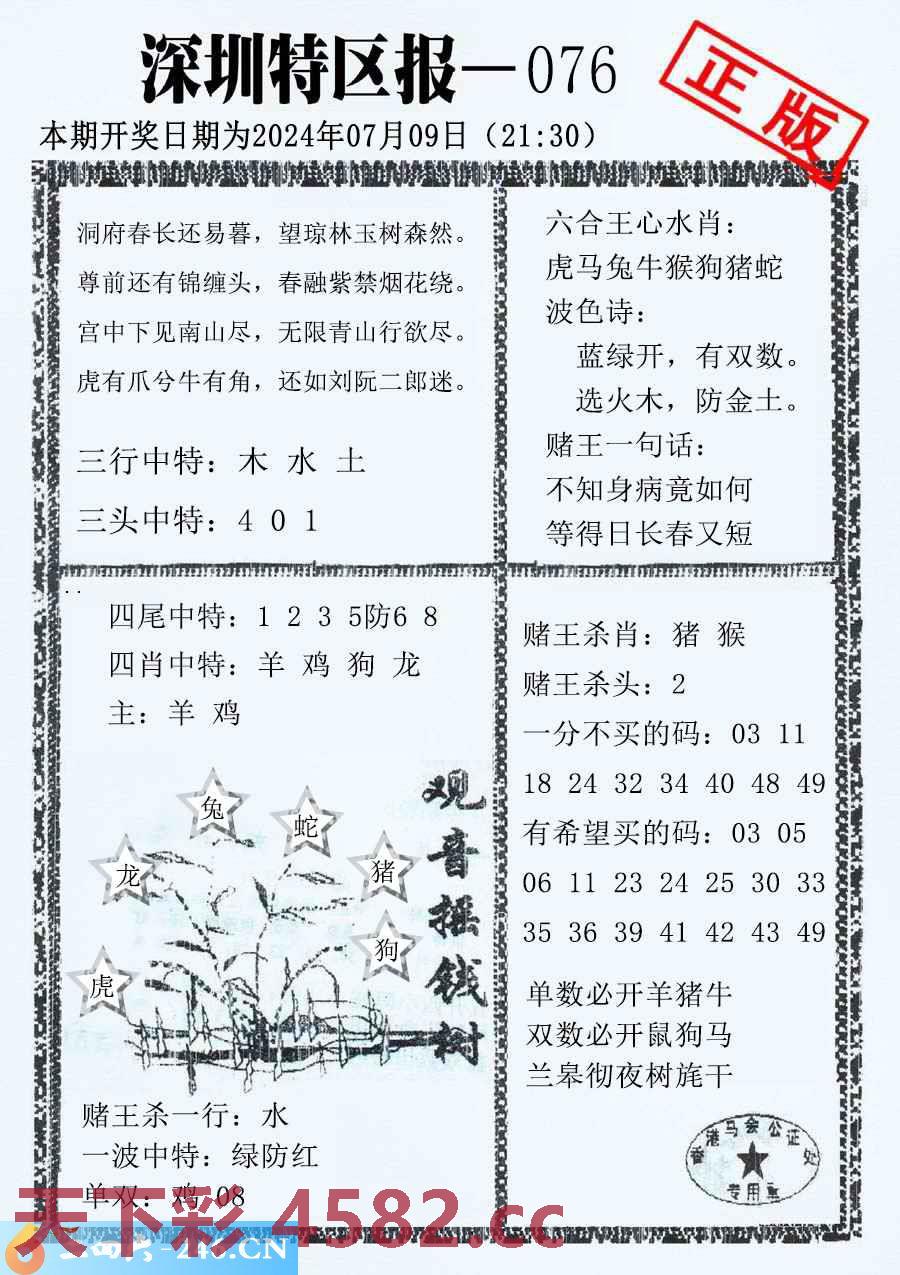 深圳特区报—076
正版
本期开奖日期为2024年07月09日（21:30）
洞府春长还易暮，望琼林玉树森然。
尊前还有锦缠头，春融紫禁烟花绕。
宫中下见南山尽，无限青山行欲尽。
虎有爪兮牛有角，还如刘阮二郎迷。
三行中特：木 水 土
三头中特：4 0 1
六合王心水肖：
虎马兔牛猴狗猪蛇
波色诗：
蓝绿开，有双数。
选火木，防金土。
赌王一句话：
不知身病竟如何
等得日长春又短
四尾中特：1 2 3 5防6 8
四肖中特：羊 鸡 狗 龙
主：羊 鸡
兔
蛇
龙
猪
狗
虎
观音摇钱树
赌王杀一行：水
一波中特：绿防红
单双：鸡 08
赌王杀肖：猪 猴
赌王杀头：2
一分不买的码：03 11
18 24 32 34 40 48 49
有希望买的码：03 05
06 11 23 24 25 30 33
35 36 39 41 42 43 49
单数必开羊猪牛
双数必开鼠狗马
兰皋彻夜树旄干
香港马会公证处
专用章
天下彩 4582.cc
-246.CN